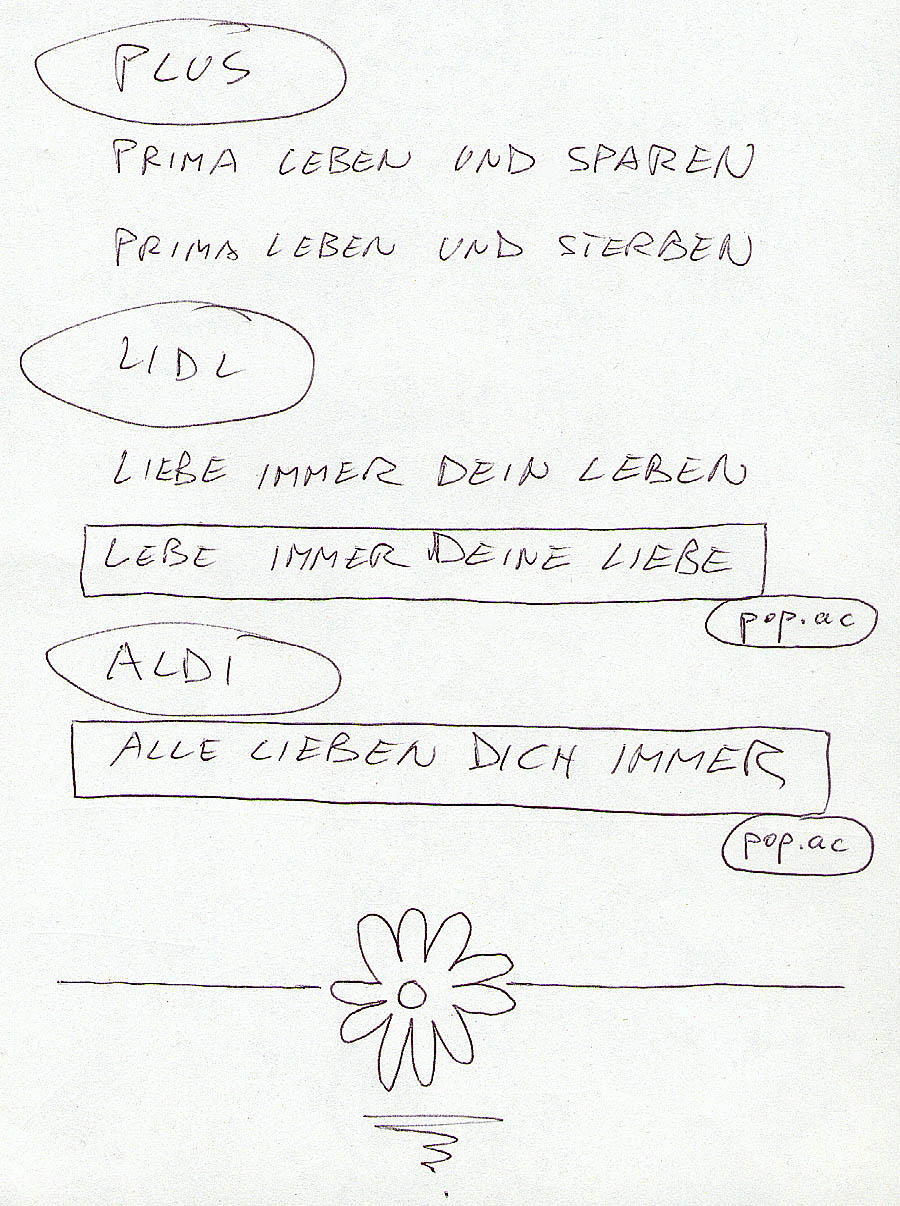 PLUS
PRIMA LEBEN UND SPAREN
PRIMA LEBEN UND STERBEN
LIDL
LIEBE IMMER DEIN LEBEN
LEBE IMMER DEINE LIEBE
pop.ac
ALDI
ALLE LIEBEN DICH IMMER
pop.ac